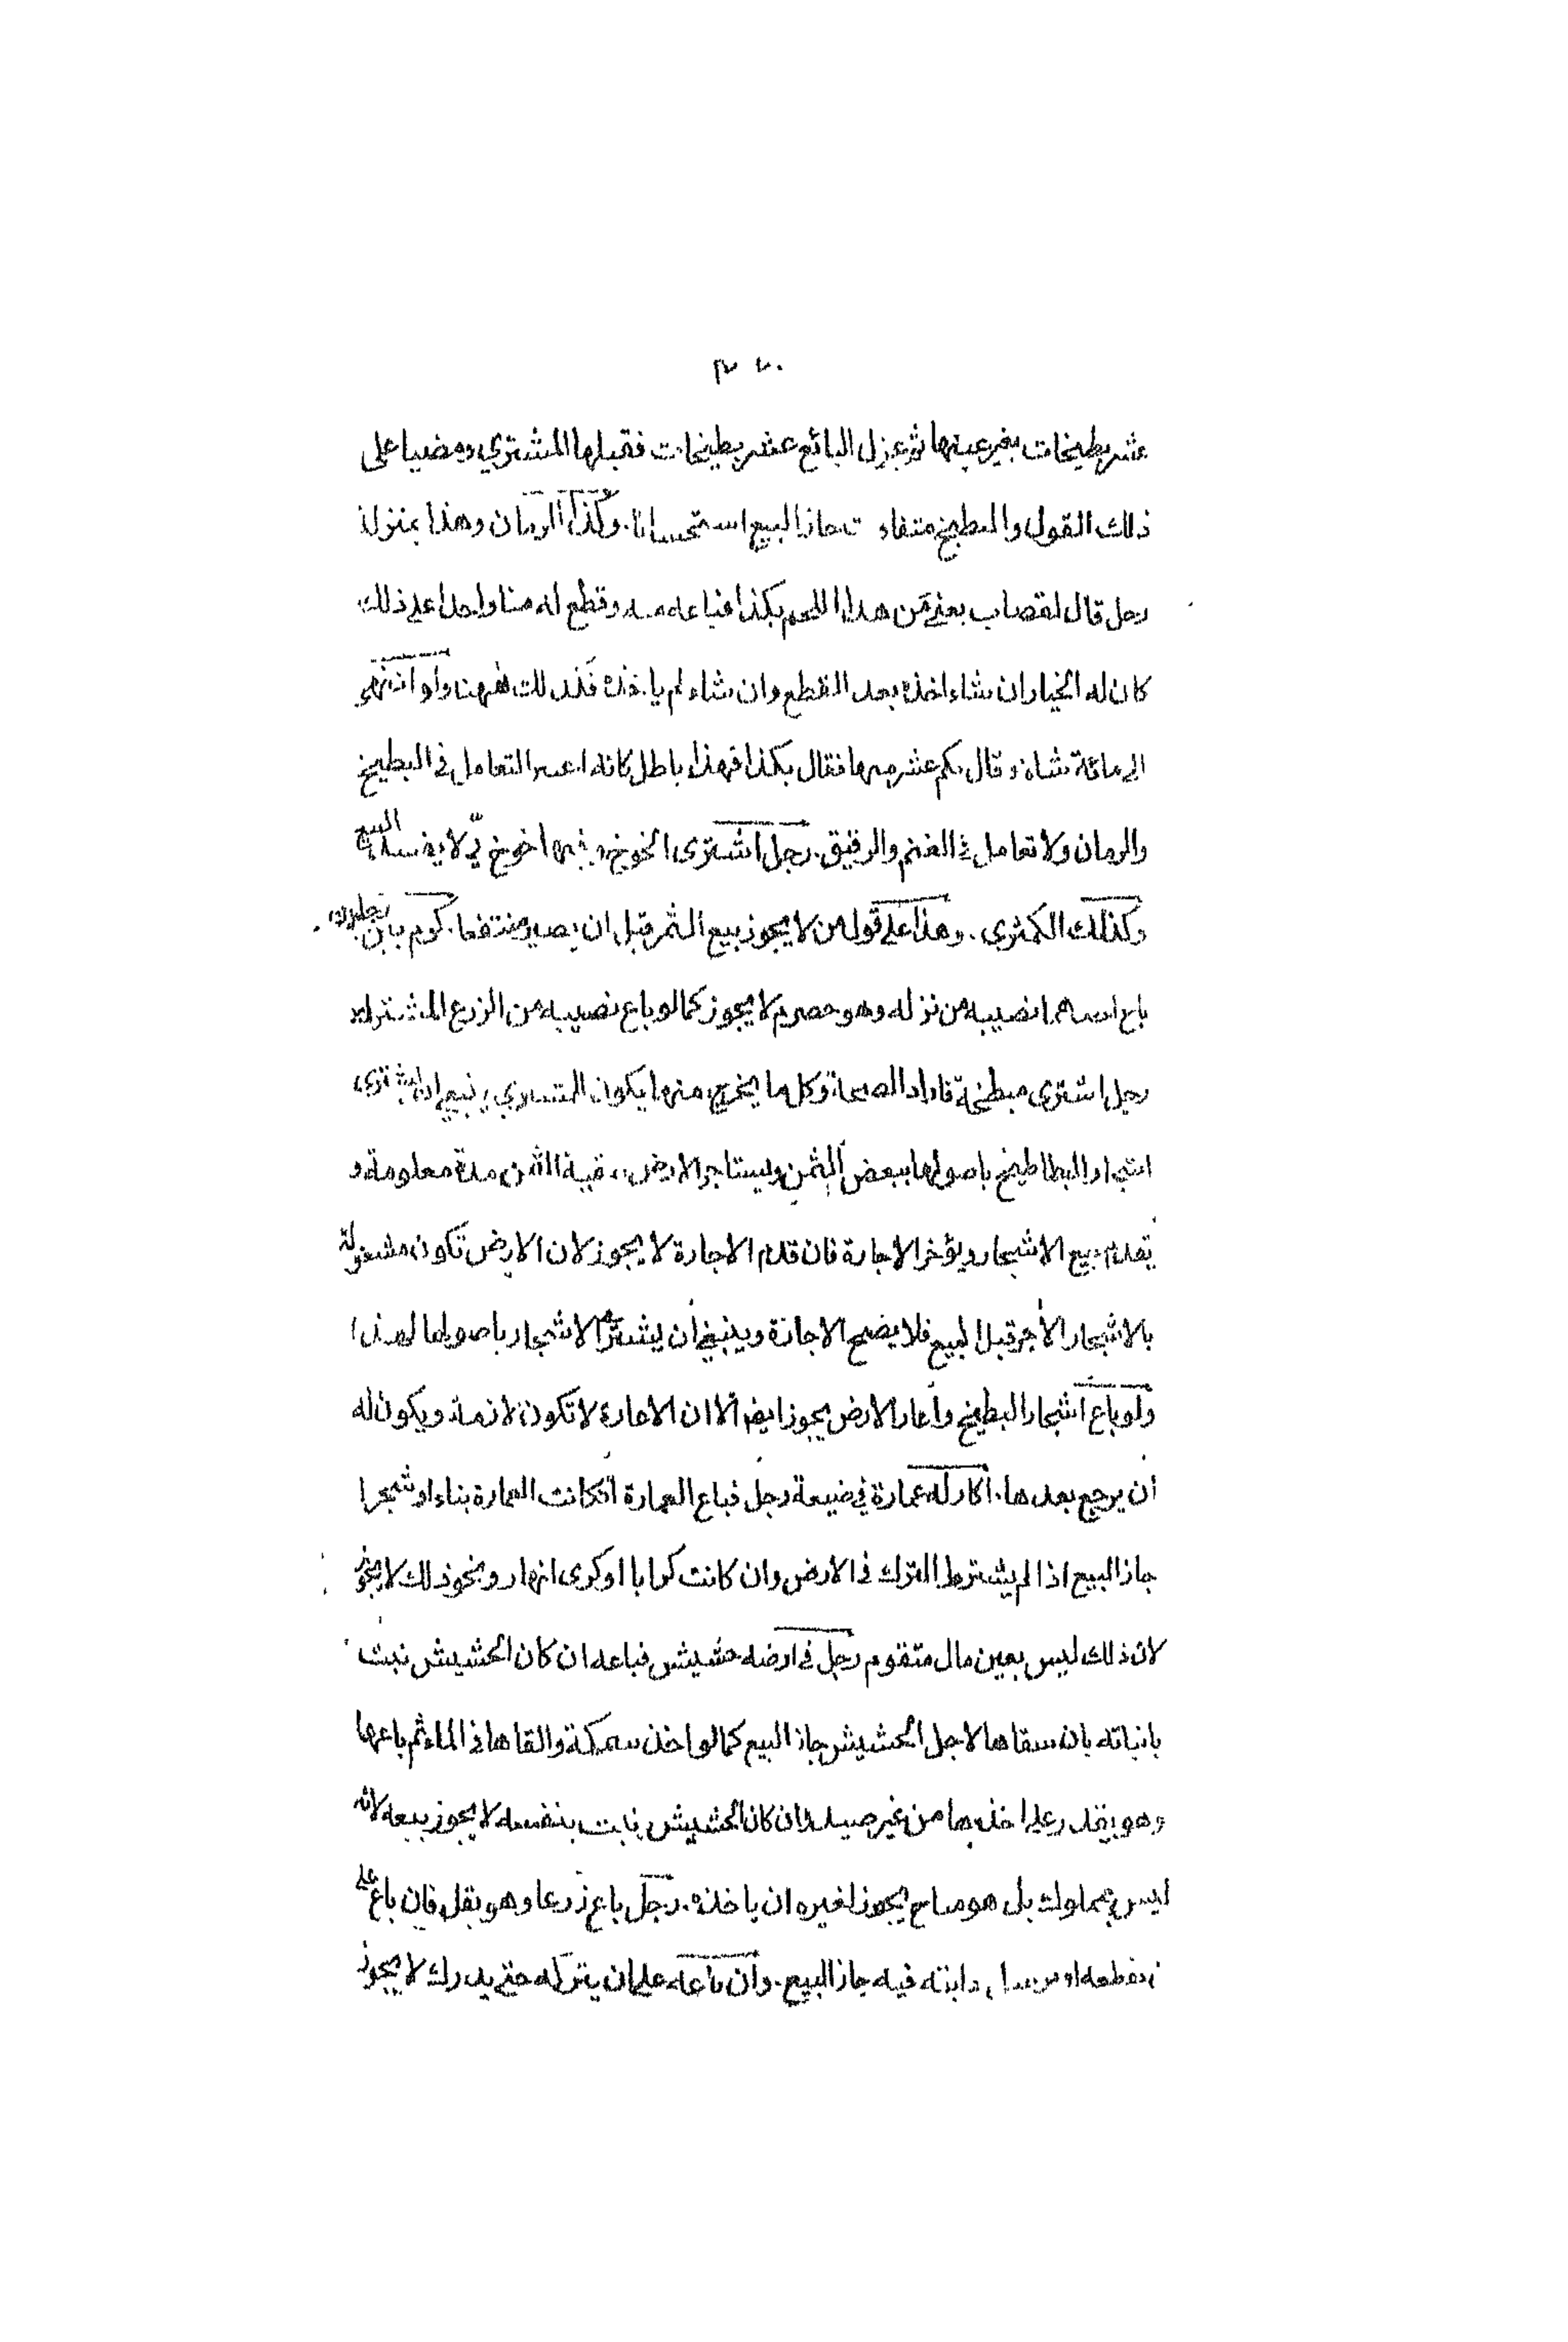 عشر بطيخات بغير عينها ثم عزل البائع عشر بطيخات فقبلها المشتري ومضيا على
ذلك القول والبطيخ متفاوت جاز البيع استحسانا. وكذا الرمان وهذا بمنزلة
رجل قال لقصاب بعني من هذا اللحم بكذا فباعه منه وقطع له منا واحدا على ذلك
كان له الخيار ان شاء اخذه بعد القطع وان شاء لم ياخذه فكذلك ههنا ولو انتهى
الى مائة شاة وقال بكم عشر منها فقال بكذا فهذا باطل كانه اعتبر التعامل في البطيخ
والرمان ولا تعامل في الغنم والرقيق. رجل اشترى الخوخ وفيها خوخ ني لا يفسد البيع
وكذلك الكمثرى. وهذا على قول من لا يجوز بيع الثمر قبل ان يصير منتفعا. كرم بين رجلين
باع احدهما نصيبه من نزله وهو حصرم لا يجوز كما لو باع نصيبه من الزرع المشترك
رجل اشترى مبطخة فاراد الصحة وكل ما يخرج منها يكون للمشتري ينبغي ان يشتري
اشجار البطاطيخ باصولها ببعض الثمن ويستاجر الارض ببقية الثمن مدة معلومة و
يقدم بيع الاشجار ويؤخر الاجارة فان قدم الاجارة لا يجوز لان الارض تكون مشغولة
بالاشجار الآجر قبل البيع فلا يصح الاجارة وينبغي ان يشتري الاشجار باصولها لهذا
ولو باع اشجار البطيخ واعار الارض يجوز ايضا الا ان الاعارة لا تكون لازمة ويكون له
ان يرجع بعدها. اكار له عمارة في ضيعة رجل فباع العمارة ان كانت العمارة بناء او شجرا
جاز البيع اذا لم يشترط الترك في الارض وان كانت كرابا او كرى انهار ونحو ذلك لا يجوز
لان ذلك ليس بعين مال متقوم رجل في ارضه حشيش فباعه ان كان الحشيش نبت
بانباته بان سقاها لاجل الحشيش جاز البيع كما لو اخذ سمكة والقاها في الماء ثم باعها
وهو يقدر على اخذها من غير صيد وان كان الحشيش نابت بنفسه لا يجوز بيعه لانه
ليس بمملوك بل هو مباح يجوز لغيره ان ياخذه. رجل باع زرعا وهو بقل فان باع على
ان يقطعه او يرسل دابته فيه جاز البيع. وان باعه على ان يتركه حتى يدرك لا يجوز